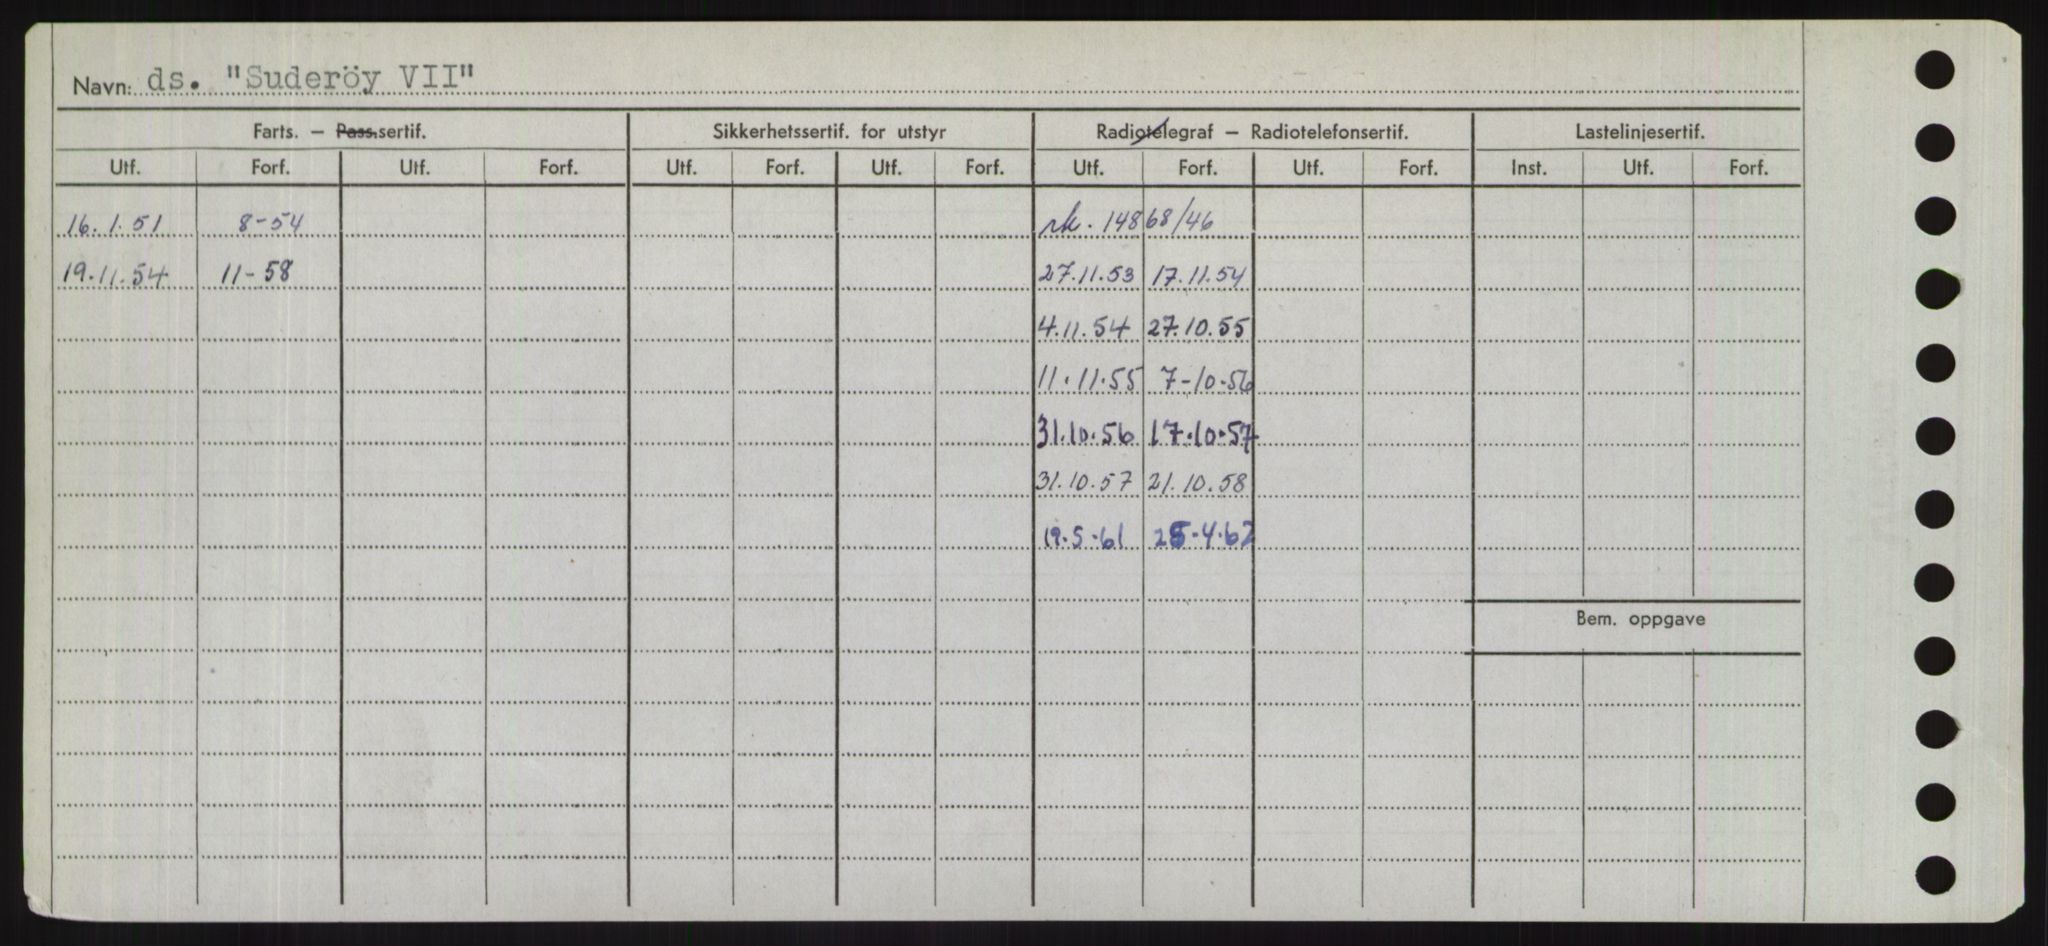 Navn: ds. "Suderöy VII"
Farts. — Pass.sertif. Sikkerhetssertif. for utstyr Radiotelegraf — Radiotelefonsertif. Lastelinjesertif.
Utf. Forf. Utf. Forf. Utf. Forf. Utf. Forf. Utf. Forf. Utf. Forf. Inst. Utf. Forf.
16.1.51 8-54 rk. 14868/46
19.11.54 11-58 27.11.53 17.11.54
4.11.54 27.10.55
11.11.55 7-10-56
31.10.56 17.10.57
31.10.57 21.10.58
19.5.61 25-4.62
Bem. oppgave